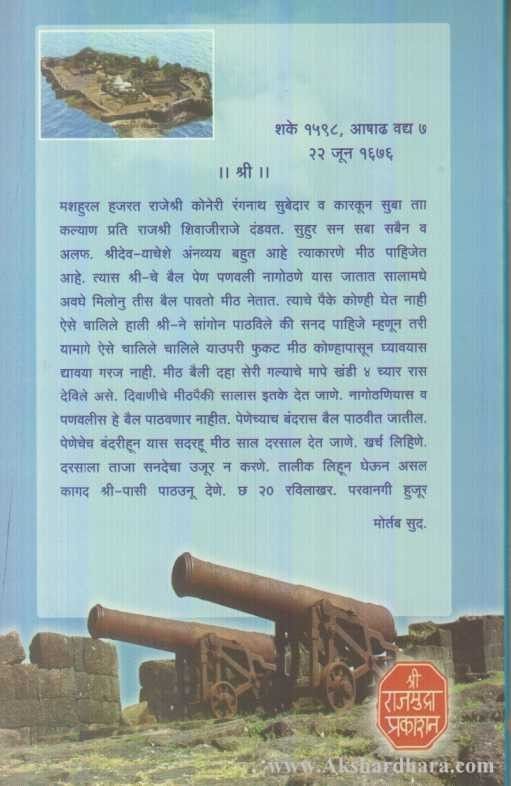 शके १५९८, आषाढ वद्य ७
२२ जून १६७६
।। श्री ।।
मशहुरल हजरत राजेश्री कोनेरी रंगनाथ सुबेदार व कारकून सुबा ताा
कल्याण प्रति राजश्री शिवाजीराजे दंडवत. सुहुर सन सबा सबैन व
अलफ. श्रीदेव-याचेशे अंनव्यय बहुत आहे त्याकारणे मीठ पाहिजेत
आहे. त्यास श्री-चे बैल पेण पणवली नागोठणे यास जातात सालामधे
अवघे मिलोनु तीस बैल पावतो मीठ नेतात. त्याचे पैके कोण्ही घेत नाही
ऐसे चालिले हाली श्री-ने सांगोन पाठविले की सनद पाहिजे म्हणून तरी
यामागे ऐसे चालिले चालिले याउपरी फुकट मीठ कोण्हापासून घ्यावयास
द्यावया गरज नाही. मीठ बैली दहा सेरी गल्याचे मापे खंडी ४ च्यार रास
देविले असे. दिवाणीचे मीठपैकी सालास इतके देत जाणे. नागोठणियास व
पणवलीस हे बैल पाठवणार नाहीत. पेणेच्याच बंदरास बैल पाठवीत जातील.
पेणेचेच बंदरीहून यास सदरहू मीठ साल दरसाल देत जाणे. खर्च लिहिणे.
दरसाला ताजा सनदेचा उजूर न करणे. तालीक लिहून घेऊन असल
कागद श्री-पासी पाठउनू देणे. छ २० रविलाखर. परवानगी हुजूर
मोर्तब सुद.
श्री
राजमुद्रा
प्रकाशन
www.Akshardhara.com